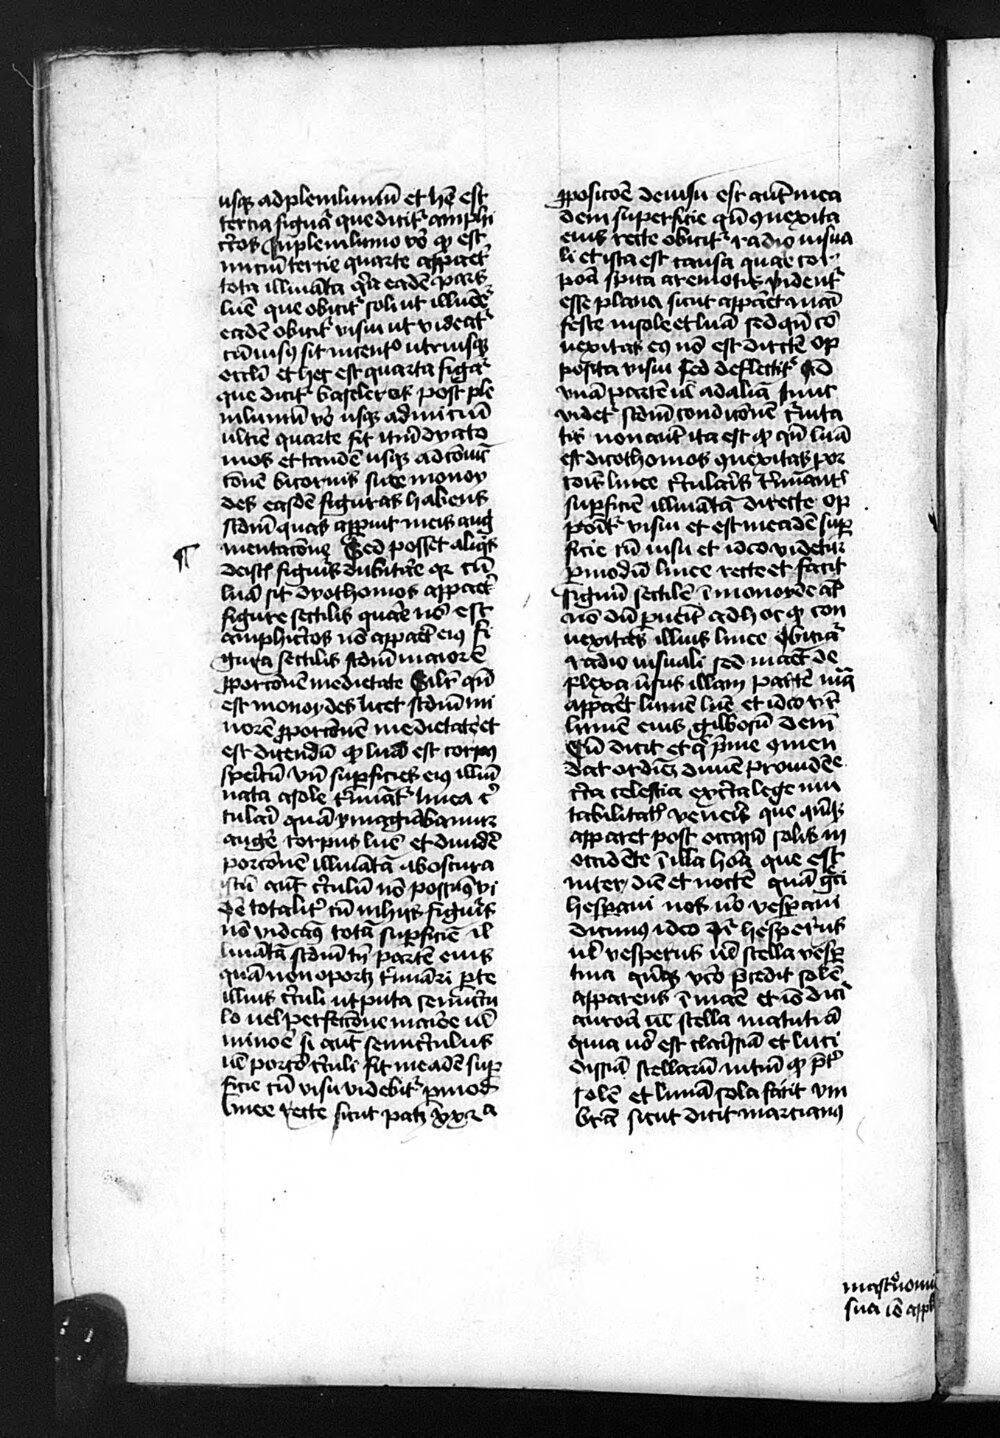 usque ad plenilunium et hec est
tercia figura que dicitur amphi
tritos In plenilunio vero quod est
inicium tercie quarte apparet
tota illuminata quia eadem pars
lune que obicitur soli ut illuminetur
eadem obicitur visui ut videatur
cum visus sit in centro utriusque
circuli et hec est quarta figura
que dicitur baseleros post ple
nilunium vero usque ad inicium
ultime quarte fit iterum dyato
mos et tandem usque ad coniunc
tionem bicornis sive monoy
des easdem figuras habens
secundum quas apparuit in eius aug
mentacione Sed posset aliquis
de istis figuris dubitare quare cum
luna sit dyothomos apparet
figure sectilis quare non est
amphitritos non apparet eius fi
gura sectilis secundum maiorem
proporcionem medietate Similiter quando
est monoydes licet secundum mi
norem proporcionem medietate et
est dicendum quod luna est corpus
spericum unde superficies eius illumi
nata a sole terminatur linea cir
culari quam ymaginabamur
tangere corpus lune et dividere
porcionem illuminatam ab obscura
istum autem circulum non possumus vi
dere totaliter cum in hiis figuris
non videamus totam superficiem il
luminatam secundum tamen partem eius
quam non oportet terminari parte
illius circuli utputa semicircu
lo vel porcione maiore vel
minore si autem semicirculus
vel porcio circuli sit in eadem super
ficie cum visu videbitur per modum
linee recte sicut patet xxx a
proposicione de visu est autem in ea
dem superficie quando convexitas
eius recte obicitur radio visua
li et ista est causa quare cor
pora sperica a remotis videntur
esse plana sicut apparet mani
feste in sole et luna sed quando con
vexitas eius non est directe op
posita visui sed deflectitur ad
unam partem vel ad aliam tunc
videtur secundum condicionem curvita
tis non autem ita est quod quando luna
est dicothomos convexitas por
cionis linee circularis terminantis
superficiem illuminatam directe op
ponitur visui et est in eadem super
ficie cum visu et ideo videtur
per modum linee recte et facit
figuram sectilem in monoyde autem
non dum pervenit ad hoc quod con
vexitas illius linee obiciatur
radio visuali sed manet de
flexa versus illam partem in qua
apparet lumen lune et ideo videtur
lumen eius gibbosum deinde
Cum dicit et que prime commen
dat ordinem divine providencie
circa celestia excepta lege mu
tabilitatis veneris que quandoque
apparet post occasum solis in
occidente in illa hora que est
inter diem et noctem quam greci
hesperam nos vero vesperam
dicimus ideo dicitur hesperus
vel vesperus vel stella vesper
tina quandoque vero precedit solem
apparens in mane et ideo dicitur
aurora vel stella matutina
quia vero est clarissima et luci
dissima stellarum intantum quod preter
solem et lunam sola facit um
bram sicut dicit marcianus